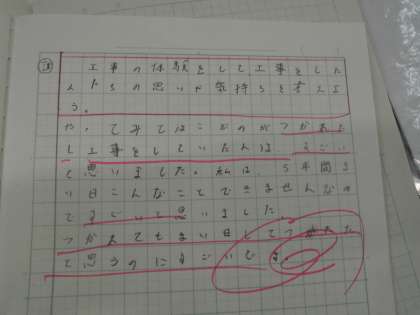 工事の体験をして工事をした
人たちの思いや気持ちを考えよ
う。
やってみてはこがのがつかれた
し工事をしていた人は すごい
と思いました。私は、5年間ま
い日こんなことできませんなの
ですごいと思いました
つかれてもまい日して
と思うのにすごいです。